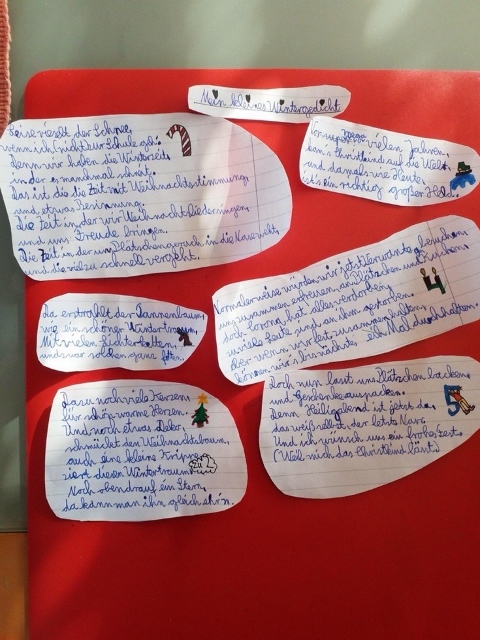 Mein kleines Wintergedicht
Leise rieselt der Schnee,
wenn ich nicht zur Schule geh.
Denn wir haben die Winterzeit,
in der es manchmal schneit.
Das ist die die Zeit mit Weihnachtsstimmung,
und etwas Besinnung.
Die Zeit in der wir Weihnachtslieder singen,
und uns Freude bringen.
Die Zeit in der uns Plätzchengeruch in die Nase zieht,
und die viel zu schnell vergeht.
Vor super mega vielen Jahren,
kam's Christkind auf die Welt,
und damals wie Heute,
ist's ein richtig großer Held.
Da erstrahlt der Tannenbaum,
wie ein schöner Wintertraum,
Mit vielen Lichterketten,
und zwar solchen ganz fetten.
Normalerweise würden wir jetzt Verwandte besuchen,
uns zusammen erfreuen an Plätzchen und Kuchen.
doch Corona hat alles verdorben,
zu viele Leute sind an ihm gestorben.
Aber wenn wir fest zusammenhalten,
können wir's bis nächstes Mal durchhalten.
Dazu noch viele Kerzen,
für schöne warme Herzen.
Und noch etwas Deko,
schmückt den Weihnachtsbaum,
auch eine kleine Krippe,
ziert diesen Wintertraum.
Noch obendrauf ein Stern,
da kann man ihn gleich ehr'n.
Doch nun lasst uns Plätzchen backen,
und Geschenke auspacken.
Denn Heiligabend ist jetzt da,
das weiß selbst der letzte Narr.
Und ich wünsch uns ein frohes Fest
(Weil mich das Christkind lässt.)